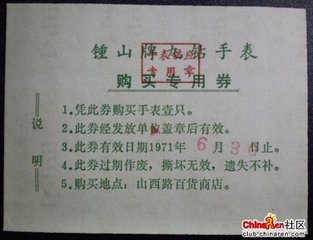 锺山牌九钻手表
专用章
购买专用券
说明
1.凭此券购买手表壹只。
2.此券经发放单位盖章后有效。
3.此券有效日期1971年6月30日止。
4.此券过期作废，撕坏无效，遗失不补。
5.购买地点：山西路百货商店。
ChinaRen社区
club.chinaren.com